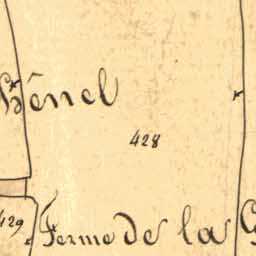 hênel
428
429
Ferme de la